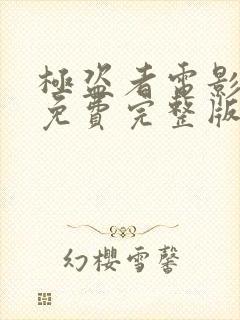 極盜者電影
免費完整版
幻櫻雪馨